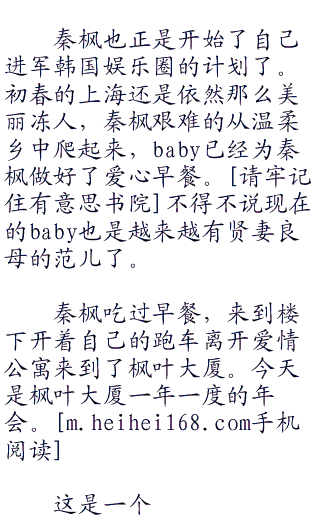 秦枫也正是开始了自己
进军韩国娱乐圈的计划了。
初春的上海还是依然那么美
丽冻人，秦枫艰难的从温柔
乡中爬起来，baby已经为秦
枫做好了爱心早餐。[请牢记
住有意思书院]不得不说现在
的baby也是越来越有贤妻良
母的范儿了。
秦枫吃过早餐，来到楼
下开着自己的跑车离开爱情
公寓来到了枫叶大厦。今天
是枫叶大厦一年一度的年
会。[m.heihei168.com手机
阅读]
这是一个